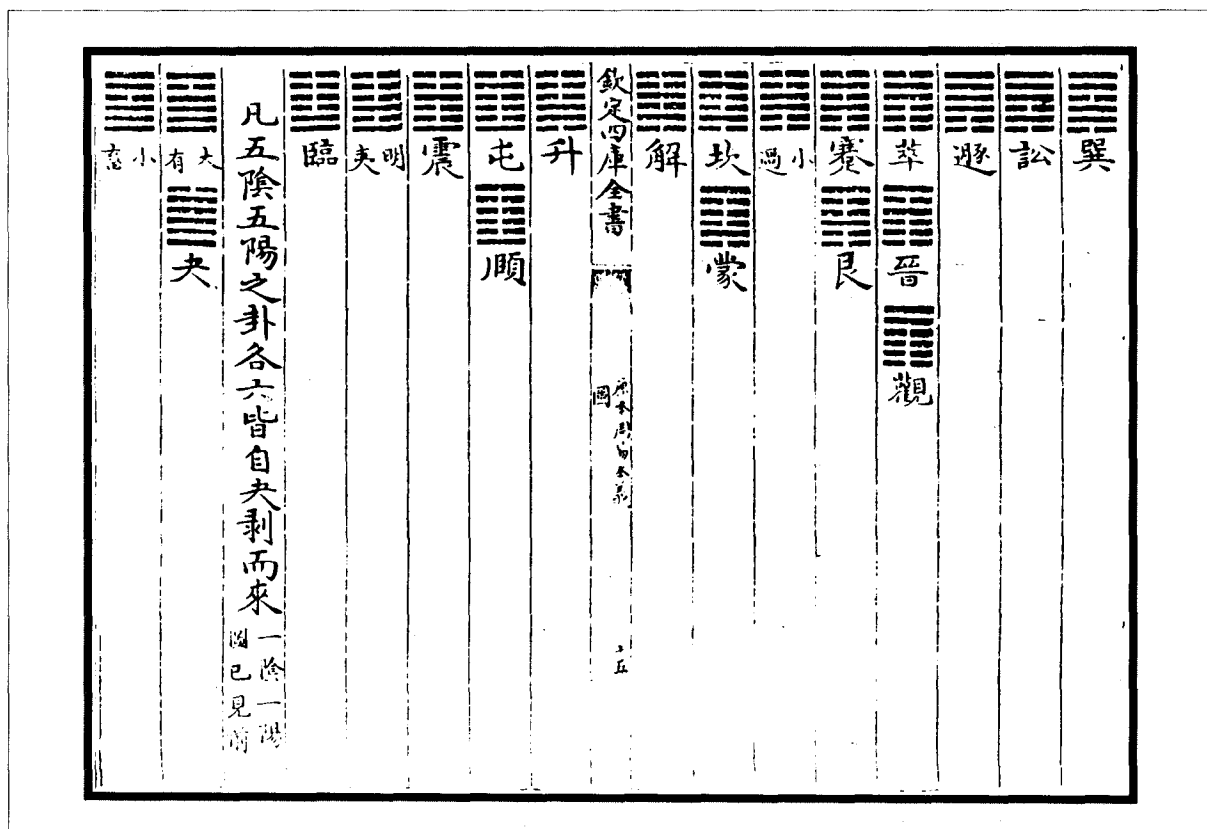 巽
訟
遯
萃 晉 觀
蹇 艮
小過
坎 蒙
解
欽定四庫全書
原本周易本義
圖
十五
升
屯 頤
震
明夷
臨
凡五陰五陽之卦各六皆自夬剥而來
一陰一陽
圖已見前
大有 夬
小畜